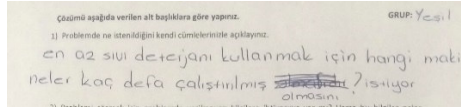 Çözümü aşağıda verilen alt başlıklara göre yapınız.
GRUP: Yeşil
1) Problemde ne istenildiğini kendi cümlelerinizle açıklayınız.
en az sıvı deterjanı kullanmak için hangi maki
neler kaç defa çalıştırılmış olmasını ? istiyor